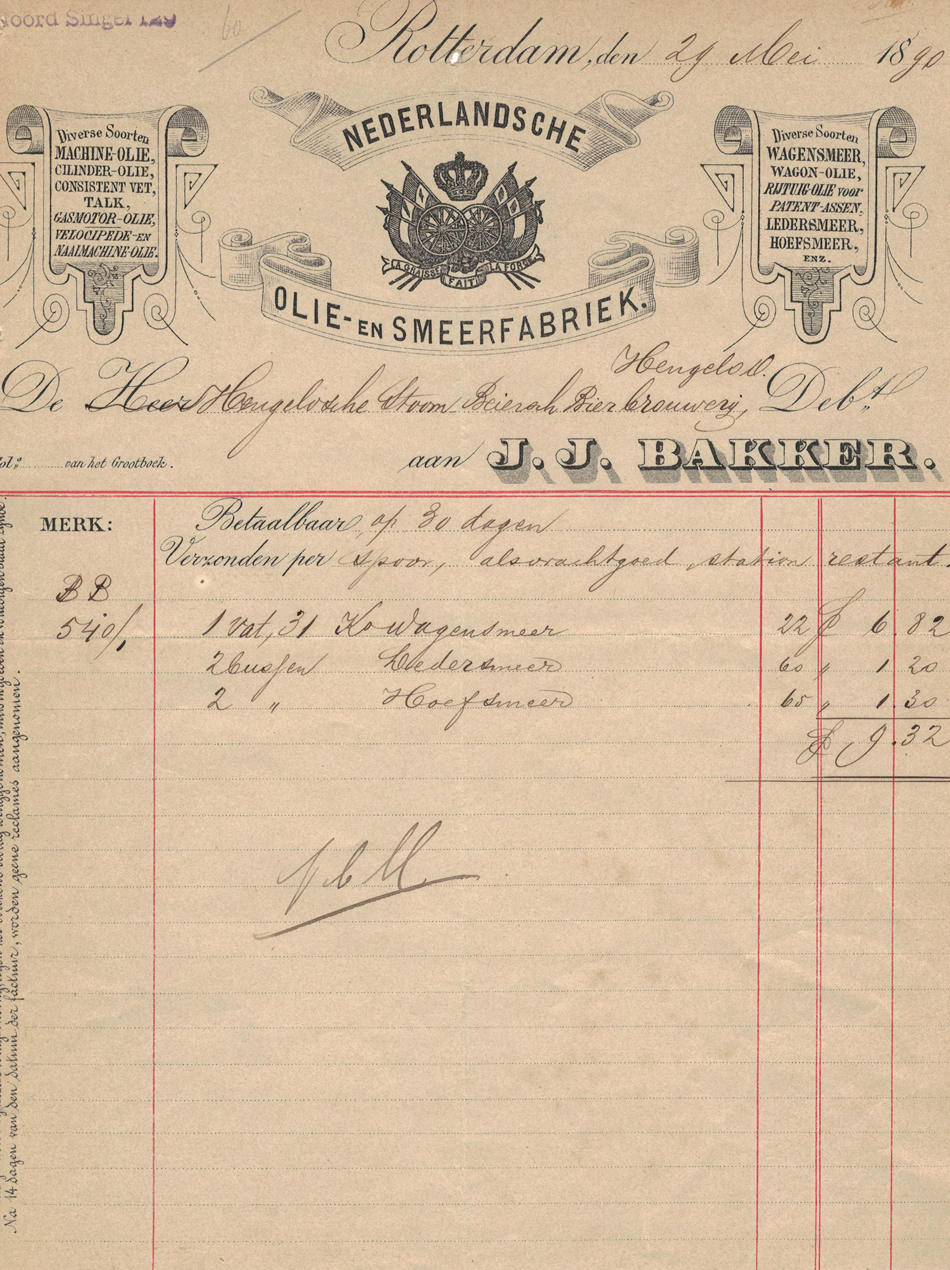 Noord Singel 129
60
Rotterdam, den 29 Mei 1890
Diverse Soorten
MACHINE-OLIE,
CILINDER-OLIE,
CONSISTENT VET,
TALK,
GASMOTOR-OLIE,
VELOCIPEDE- EN
NAAIMACHINE-OLIE.
NEDERLANDSCHE
LA GRAISSE FAIT LA FORCE
OLIE- EN SMEERFABRIEK.
Diverse Soorten
WAGENSMEER,
WAGON-OLIE,
RIJTUIG-OLIE voor
PATENT-ASSEN,
LEDERSMEER,
HOEFSMEER,
ENZ.
Hengelo O.
De Heer Hengelosche Stoom Beiersch Bierbrouwerij, Debt.
Fol.° van het Grootboek.
aan J. J. BAKKER.
MERK:
Betaalbaar op 30 dagen
Verzonden per spoor, als vrachtgoed, station restant.
BB
540/1 1 vat, 31 Ko Wagensmeer 22 f 6.82
2 bussen Ledersmeer 60 " 1.20
2 " Hoefsmeer 65 " 1.30
f 9.32
Na 14 dagen van den datum der factuur, worden geene reclames aangenomen.